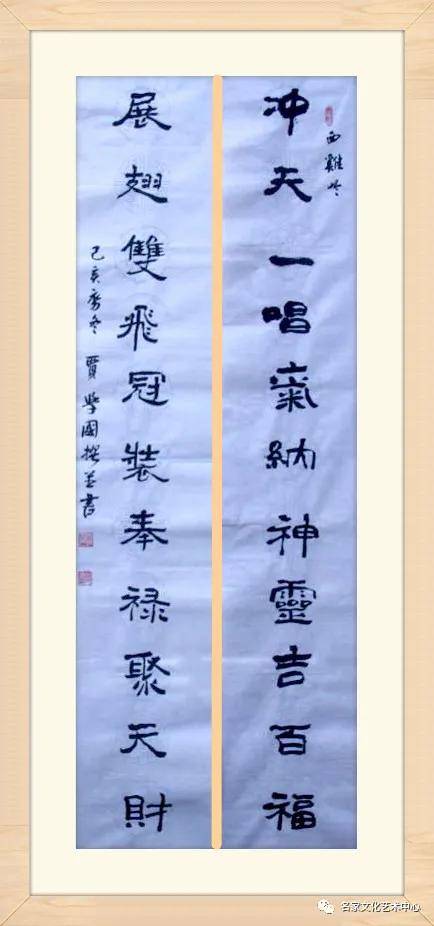 酉雞吟
冲天一唱氣納神靈吉百福
展翅雙飛冠裝奉禄聚天財
己亥冬 賈學國撰並書
名家文化艺术中心